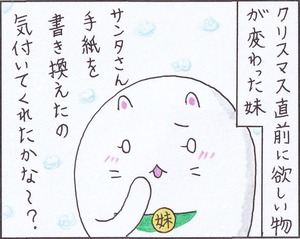 クリスマス直前に欲しい物
が変わった妹
サンタさん
手紙を
書き換えたの
気付いてくれたかな～？
妹